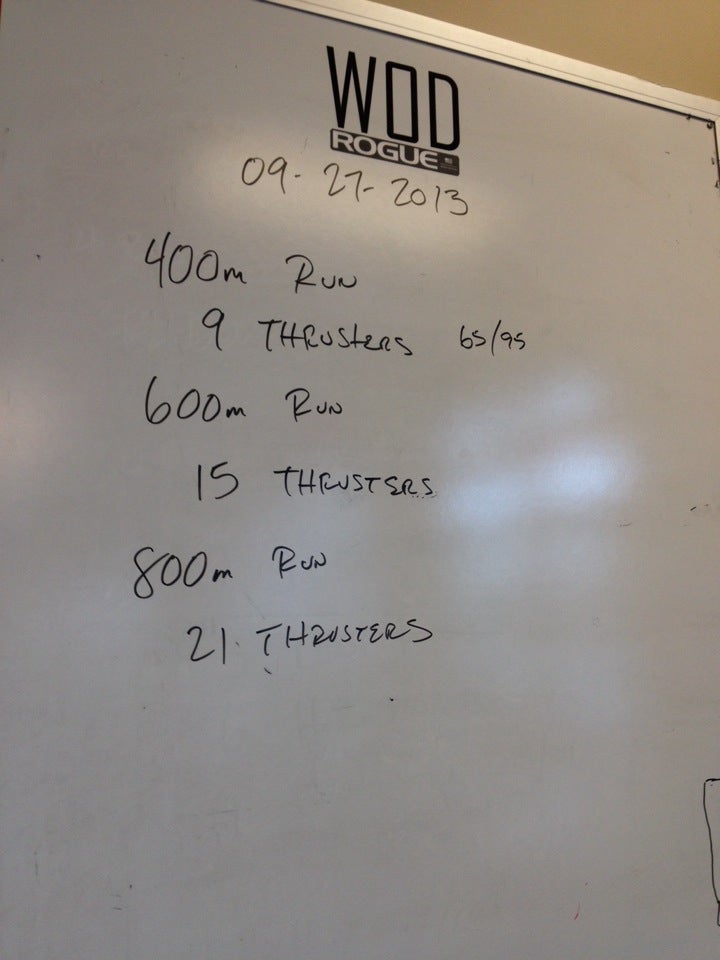 WOD
ROGUE
09-27-2013
400m RUN
9 THRUSTERS 65/95
600m RUN
15 THRUSTERS
800m RUN
21 THRUSTERS